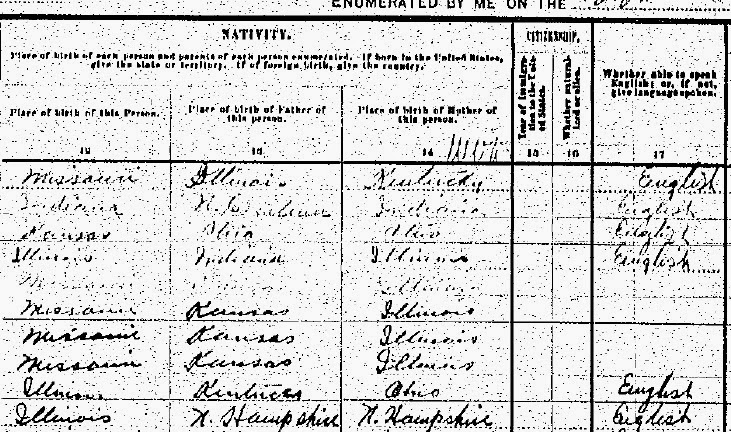 ENUMERATED BY ME ON THE
NATIVITY.
CITIZENSHIP.
Place of birth of each person and parents of each person enumerated. If born in the United States,
give the state or territory. If of foreign birth, give the country.
Place of birth of this Person.
Place of birth of Father of
this person.
Place of birth of Mother of
this person.
Year of immigra-
tion to the Unit-
ed States.
Whether natural-
ized or alien.
Whether able to speak
English; or, if not,
give language spoken.
12 13 14 15 16 17
Missouri Illinois Kentucky English
Indiana Indiana English
Kansas Ohio Ohio English
Illinois Indiana Illinois English
Missouri Illinois
Missouri Kansas Illinois
Missouri Kansas Illinois
Missouri Kansas Illinois
Illinois Kentucky Ohio English
Illinois N. Hampshire N. Hampshire English